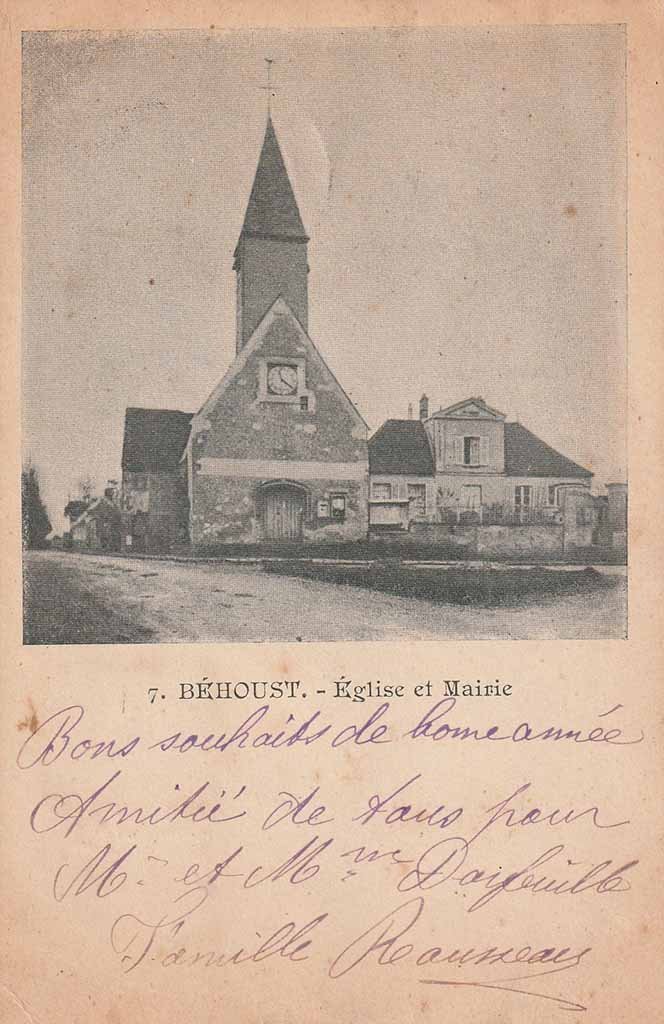 7. BÉHOUST. - Église et Mairie
Bons souhaits de bonne année
Amitié de tous pour
Mr et Mme Dorfeuille
Famille Rousseau